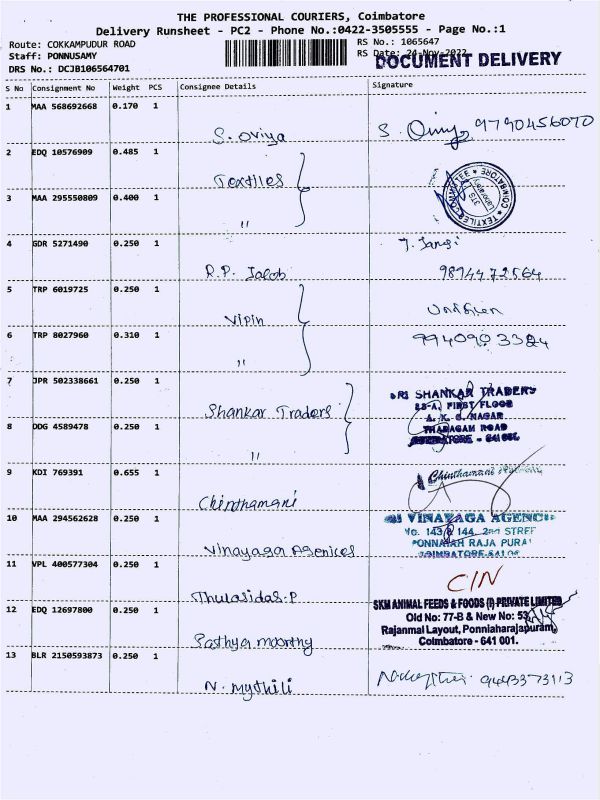 THE PROFESSIONAL COURIERS, Coimbatore
Delivery Runsheet - PC2 - Phone No.:0422-3505555 - Page No.:1
Route: COKKAMPUDUR ROAD
RS No.: 1065647
Staff: PONNUSAMY
RS Date: 24-Nov-2022
DOCUMENT DELIVERY
DRS No.: DCJB106564701
S No Consignment No Weight PCS Consignee Details Signature
1 MAA 568692668 0.170 1
S. Oviya
S. 9790456070
2 EDQ 10576909 0.485 1
Textiles
TEXTILES COMMITTEE ★ COIMBATORE ★
Laboratory
3 MAA 295550809 0.400 1
"
4 GDR 5271490 0.250 1
R.P. Jacob
J. Jansi
9894472564
5 TRP 6019725 0.250 1
Vipin
6 TRP 8027960 0.310 1
"
9940903384
7 JPR 502338661 0.250 1
Shankar Traders
SRI SHANKAR TRADERS
23-A, FIRST FLOOR
A. K. S. NAGAR
THADAGAM ROAD
COIMBATORE - 641
8 DDG 4589478 0.250 1
"
9 KDI 769391 0.655 1
Chinthamani
Chinthamani
10 MAA 294562628 0.250 1
Vinayaga Agenices
SRI VINAYAGA AGENCIES
No. 143 & 144, 2nd STREET
PONNAIAH RAJA PURAM
COIMBATORE
11 VPL 400577304 0.250 1
Thulasidas.P
CIN
12 EDQ 12697800 0.250 1
Sathya moorthy
SKM ANIMAL FEEDS & FOODS (I) PRIVATE LIMITED
Old No: 77-B & New No: 53,
Rajanmal Layout, Ponniaharajapuram,
Coimbatore - 641 001.
13 BLR 2150593873 0.250 1
N. Mythili
9443373113